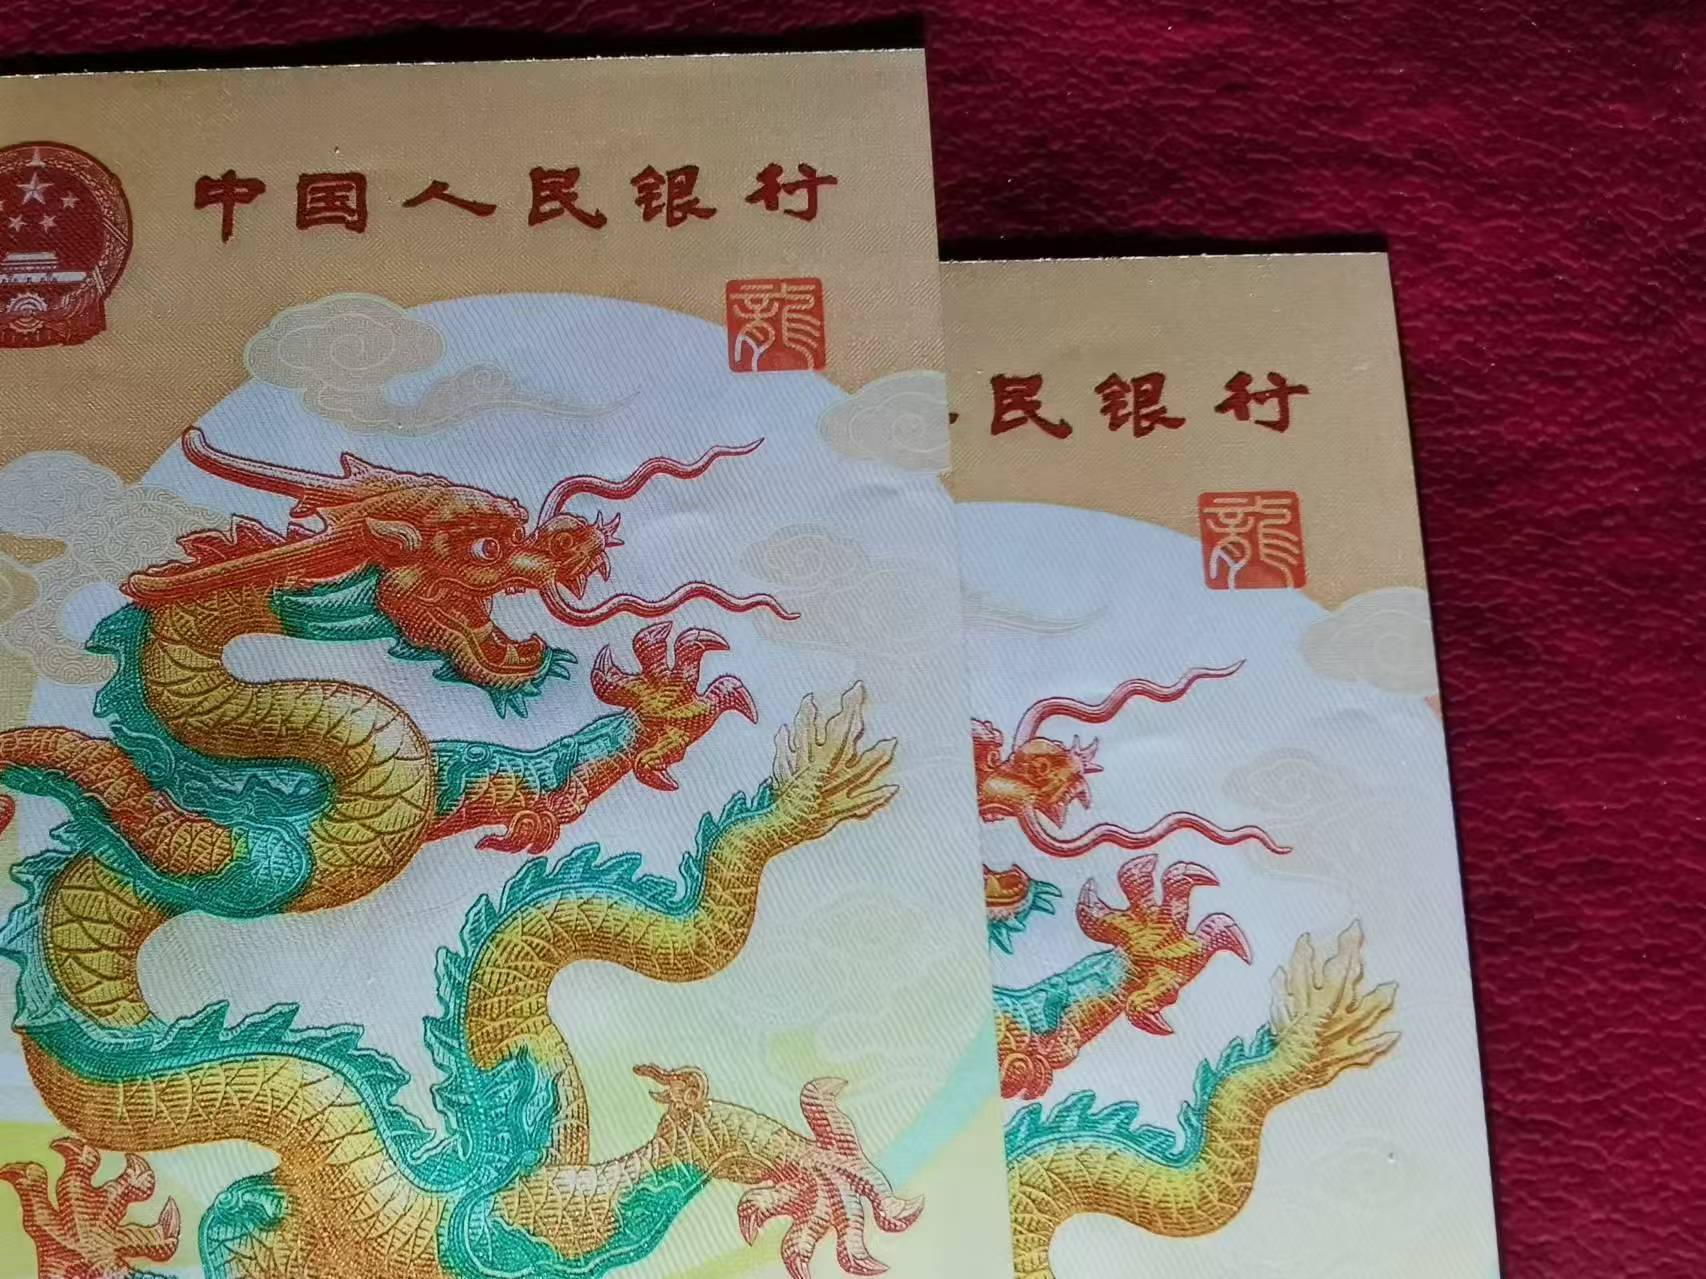 中国人民银行
龍
民银行
龍